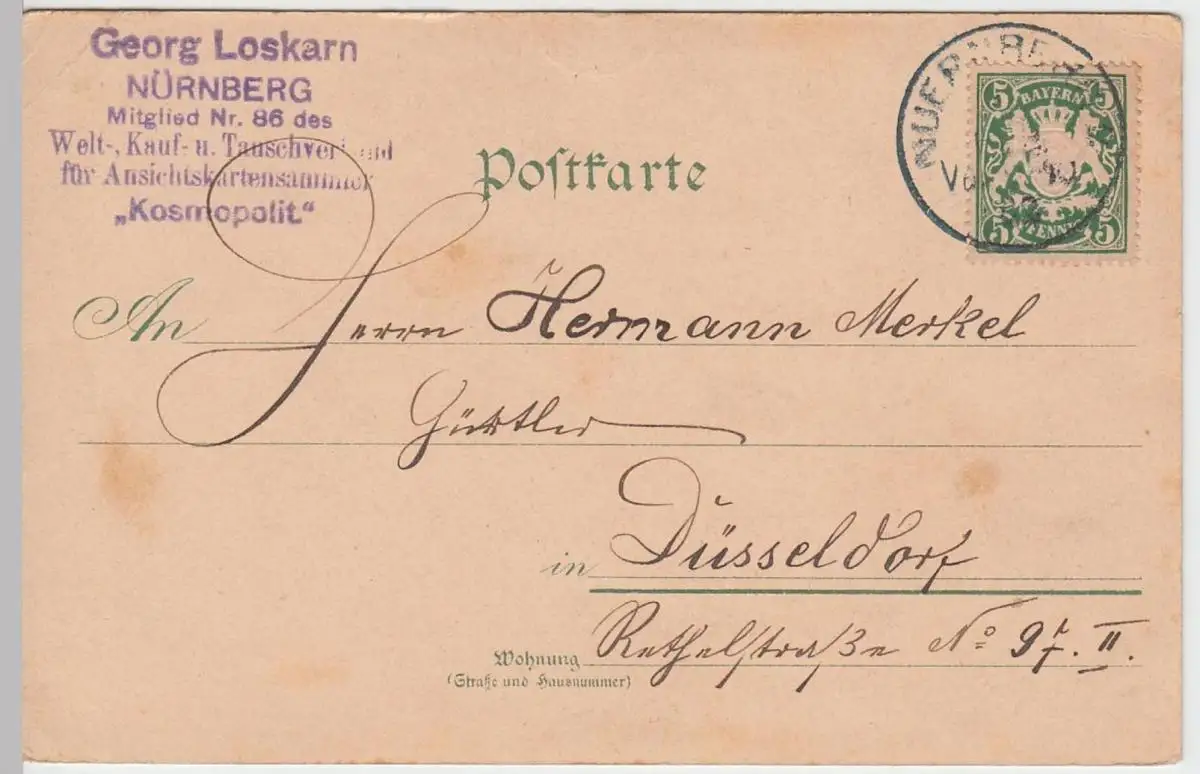 Georg Loskarn
NÜRNBERG
Mitglied Nr. 86 des
Welt-, Kauf- u. Tauschverband
für Ansichtskartensammler
„Kosmopolit."
Poſtkarte
NUERNBERG
5 BAYERN 5
5 PFENNIG 5
An Herrn Hermann Merkel
Gürtler
in Düsseldorf
Wohnung Rethelstraße No 97. II.
(Straße und Hausnummer)